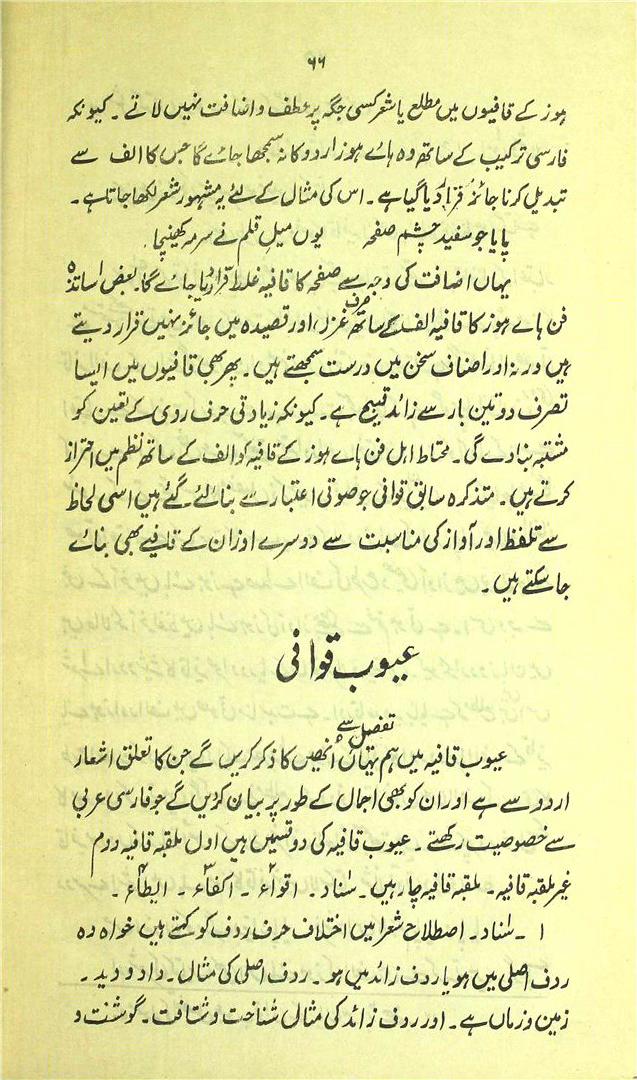 ۶۶
ہوز کے قافیوں میں مطلع یا شعر کسی جگہ پر عطف و اضافت نہیں لاتے۔ کیونکہ
فارسی ترکیب کے ساتھ وہ ہائے ہوز اردو کا نہ سمجھا جائے گا جس کا الف سے
تبدیل کرنا جائز قرار دیا گیا ہے۔ اس کی مثال کے لئے یہ مشہور شعر لکھا جاتا ہے۔
پایا جو سفید چشم صفحہ یوں میل قلم نے سرمہ کھینچا
یہاں اضافت کی وجہ سے صفحہ کا قافیہ غلط قرار دیا جائے گا۔ بعض اساتذہ
فن ہائے ہوز کا قافیہ الف کے ساتھ صرف غزل، اور قصیدہ میں جائز نہیں قرار دیتے
ہیں ورنہ اور اصناف سخن میں درست سمجھتے ہیں۔ پھر بھی قافیوں میں ایسا
تصرف دو تین بار سے زائد قبیح ہے۔ کیونکہ زیادتی حرف روی کے تعین کو
مشتبہ بنا دے گی۔ محتاط اہل فن ہائے ہوز کے قافیہ کو الف کے ساتھ نظم میں احتراز
کرتے ہیں۔ متذکرہ سابق قوافی جو صوتی اعتبار سے بنائے گئے ہیں اسی لحاظ
سے تلفظ اور آواز کی مناسبت سے دوسرے اوزان کے قافیے بھی بنائے
جا سکتے ہیں۔
عیوب قوافی
عیوب قافیہ میں ہم یہاں اُنھیں کا تفصیل سے ذکر کریں گے جن کا تعلق اشعار
اردو سے ہے اور ان کو بھی اجمال کے طور پر بیان کریں گے جو فارسی عربی
سے خصوصیت رکھتے۔ عیوب قافیہ کی دو قسمیں ہیں اول ملقبہ قافیہ دوم
غیر ملقبہ قافیہ۔ ملقبہ قافیہ چار ہیں۔ سناد۔ اقواء۔ اکفاء۔ ایطاء۔
۱۔ سناد۔ اصطلاح شعرا میں اختلاف حرف ردف کو کہتے ہیں خواہ وہ
ردف اصلی میں ہو یا ردف زائد میں ہو۔ ردف اصلی کی مثال۔ داد و دید۔
زمین و زماں ہے۔ اور ردف زائد کی مثال شناخت و شتافت۔ گوشت و